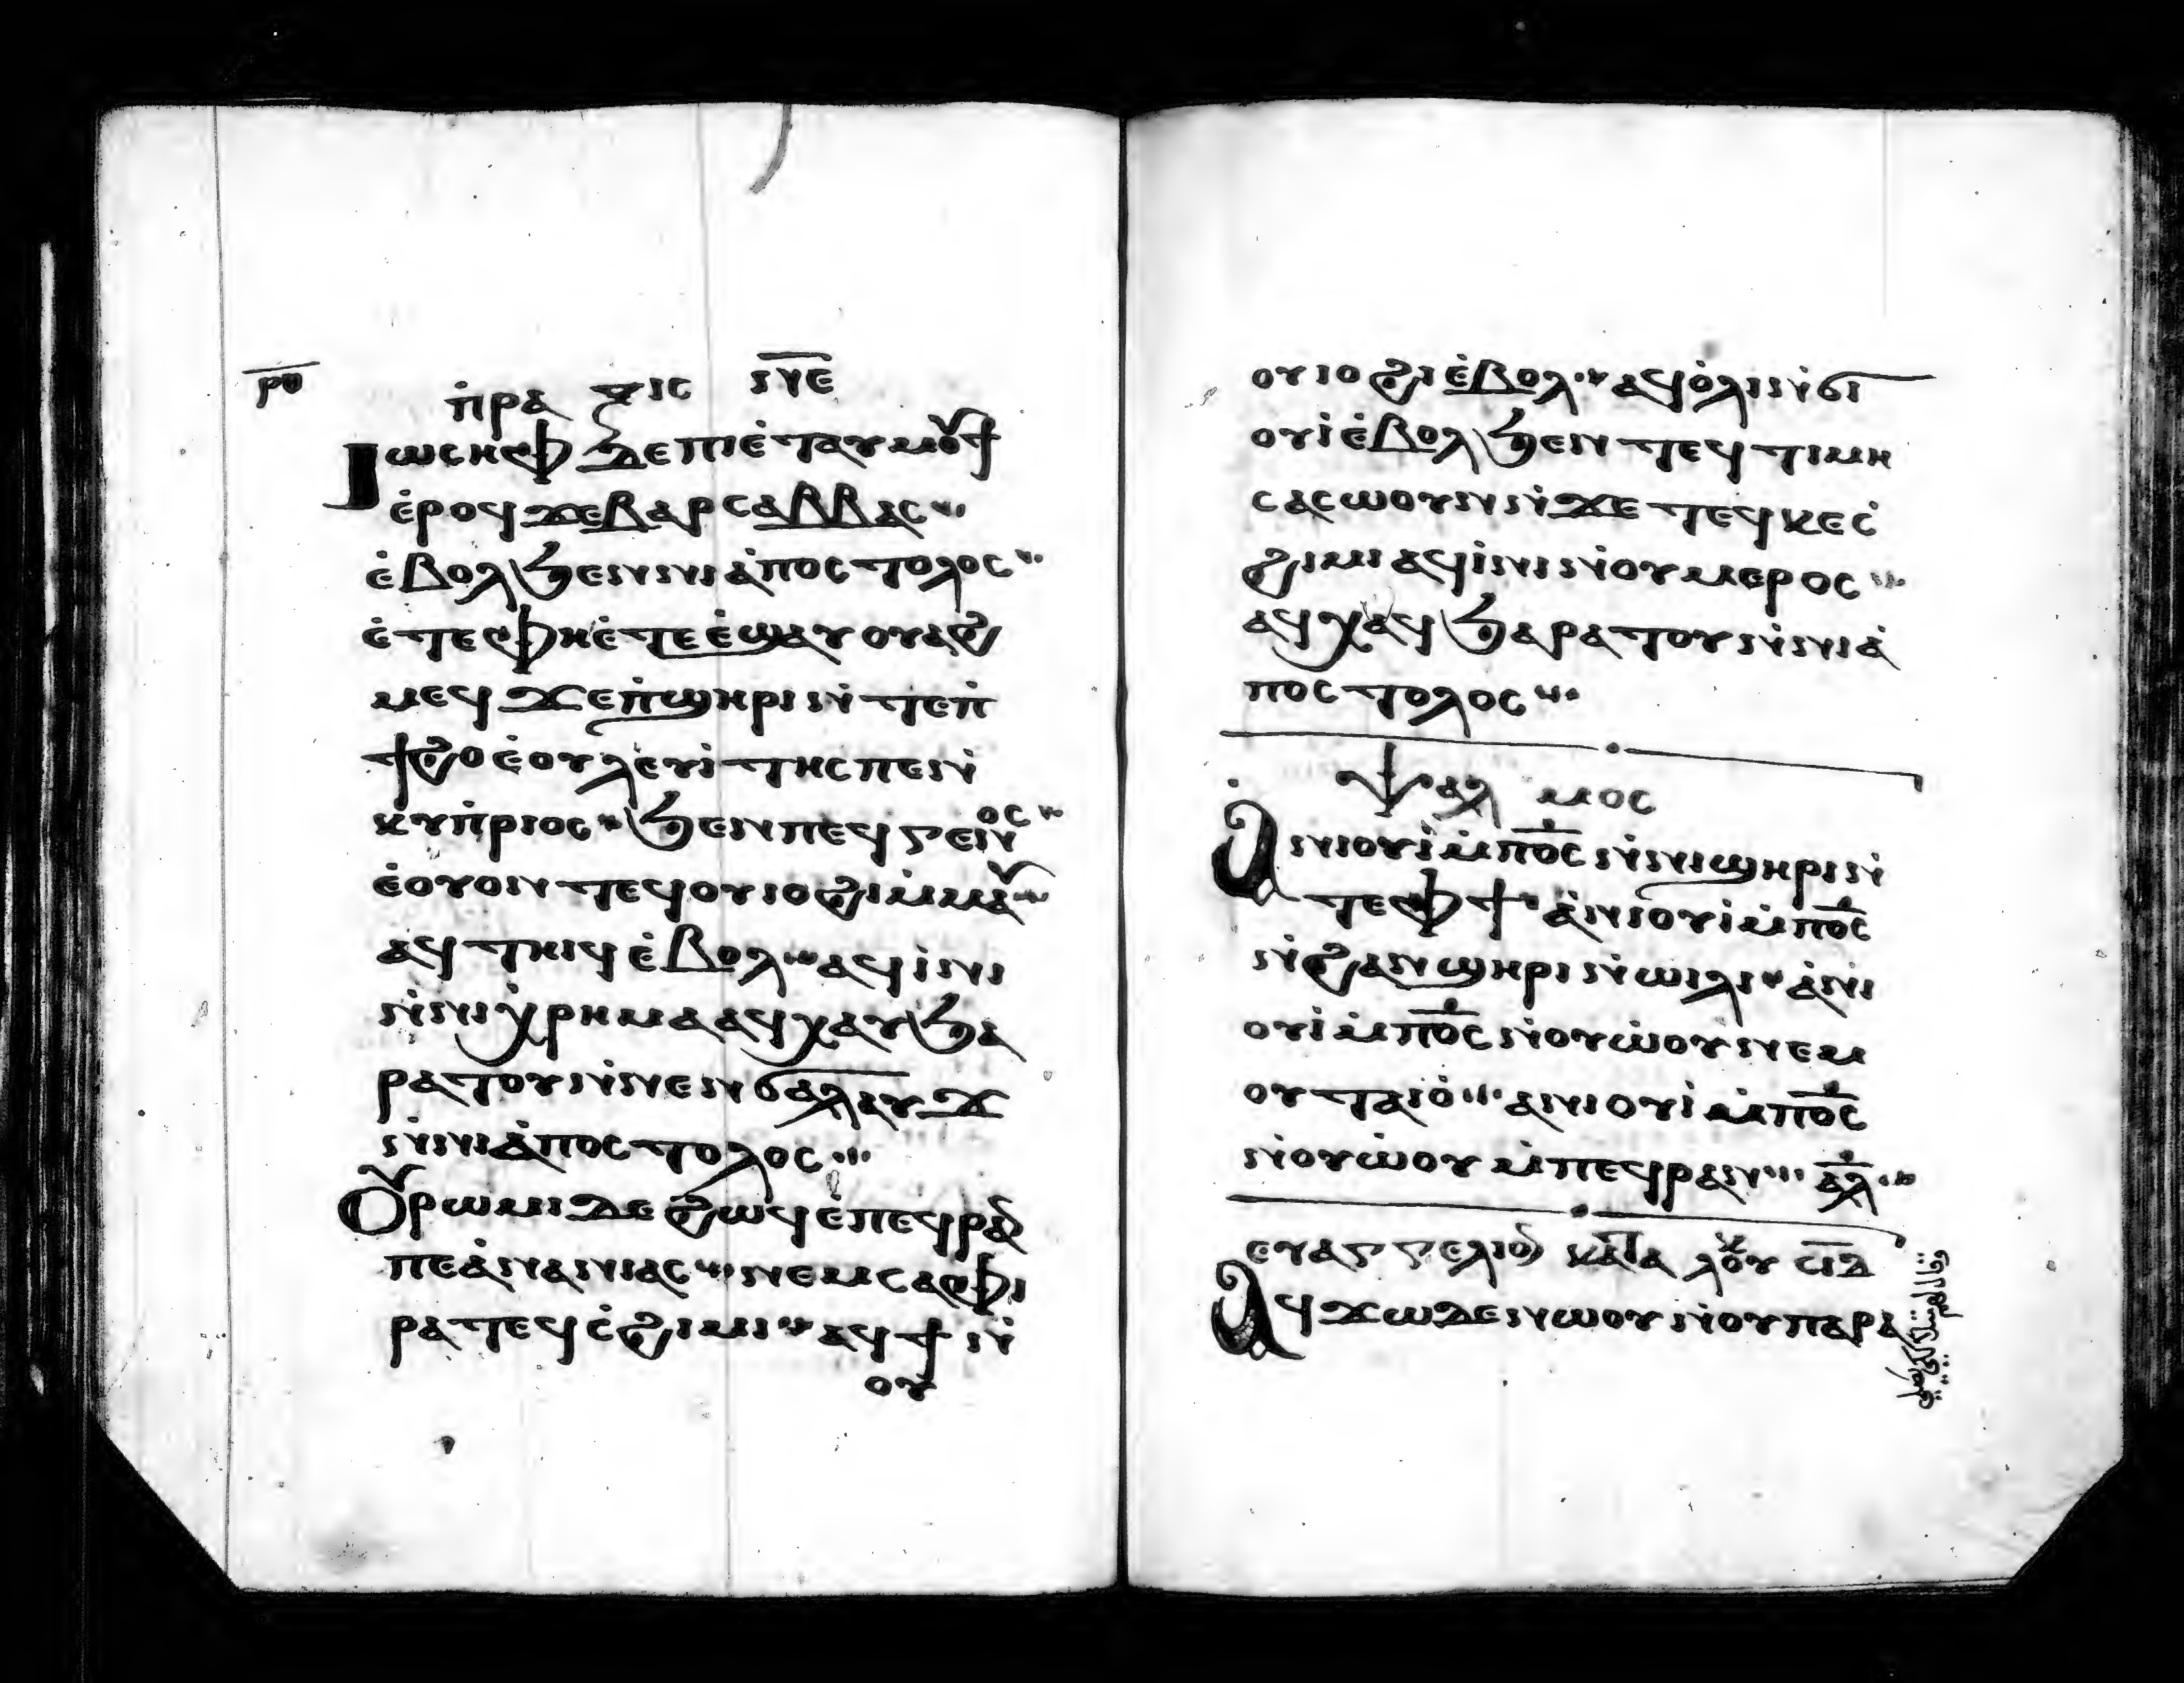 ⲣⲑ
ⲡ̇ⲣⲁ ⲝⲓⲥ ⲛ̅ⲉ̅
Ⲓⲱⲥⲏⲫ ⲇⲉ ⲡⲓⲉ̇ⲧⲁⲩⲙⲟⲩϯ
ⲉ̇ⲣⲟϥ ϫⲉ ⲃⲁⲣⲥⲁⲃⲃⲁⲥ
ⲉ̇ⲃⲟⲗ ϧⲉⲛ ⲛⲓⲁ̇ⲡⲟⲥⲧⲟⲗⲟⲥ
ⲉ̇ⲧⲉ ⲫⲏⲉ̇ⲧⲉ ⲉ̇ϣⲁⲩⲟⲩⲁϩ
ⲙⲉϥ ϫⲉ ⲡ̇ϣⲏⲣⲓ ⲛ̇ⲧⲉ ⲡ̇
ϯϩⲟ ⲉ̇ⲟⲩⲗⲉⲩⲓ̇ⲧⲏⲥ ⲡⲉ ⲛ̇
ⲕⲩⲡ̇ⲣⲓⲟⲥ ϧⲉⲛ ⲡⲉϥⲅⲉⲛⲟⲥ
ⲉ̇ⲟⲩⲟⲛ ⲧⲉϥ ⲟⲩⲓⲟϩⲓ ⲙ̇ⲙⲁⲩ
ⲁϥⲧⲏⲓϥ ⲉ̇ⲃⲟⲗ ⲁϥⲓ̇ⲛⲓ
ⲛ̇ⲛⲓⲭ̇ⲣⲏⲙⲁ ⲁϥⲭⲁⲩ ϧⲁ
ⲣⲁⲧⲟⲩ ⲛ̇ⲛⲉⲛϭⲁⲗⲁⲩϫ
ⲛ̇ⲛⲓⲁ̇ⲡⲟⲥⲧⲟⲗⲟⲥ
Ⲟⲩⲣⲱⲙⲓ ⲇⲉ ϩⲱϥ ⲉ̇ⲡⲉϥⲣⲁⲛ
ⲡⲉ ⲁ̇ⲛⲁⲛⲓⲁⲥ ⲛⲉⲙ ⲥⲁⲫⲓ
ⲣⲁ ⲧⲉϥⲥ̇ϩⲓⲙⲓ ⲁϥϯ ⲛ̇
ⲟⲩ
ⲟⲩⲓⲟϩⲓ ⲉ̇ⲃⲟⲗ ⲁϥⲟ̇ⲗⲓ ⲛ̇ϭⲓ
ⲟⲩⲓ̇ ⲉ̇ⲃⲟⲗ ϧⲉⲛ ⲧⲉϥⲧⲓⲙⲏ
ⲥⲁⲥⲱⲟⲩⲛ ⲛ̇ϫⲉ ⲧⲉϥⲕⲉⲥ̇
ϩⲓⲙⲓ ⲁϥⲓ̇ⲛⲓ ⲛ̇ⲟⲩⲙⲉⲣⲟⲥ
ⲁϥⲭⲁϥ ϧⲁⲣⲁⲧⲟⲩ ⲛ̇ⲛⲓⲁ̇
ⲡⲟⲥⲧⲟⲗⲟⲥ
ⲯⲁⲗ ⲙⲟⲥ
Ⲁⲛⲓⲟⲩⲓ̇ ⲙ̇ⲡⲟ̅ⲥ̅ ⲛ̇ⲛⲓϣⲏⲣⲓ ⲛ̇
ⲧⲉ ⲫϯ ⲁ̇ⲛⲓⲟⲩⲓ̇ ⲙ̇ⲡⲟ̅ⲥ̅
ⲛ̇ϩⲁⲛϣⲏⲣⲓ ⲛ̇ⲱⲓⲗⲓ ⲁ̇ⲛⲓ
ⲟⲩⲓ̇ ⲙ̇ⲡⲟ̅ⲥ̅ ⲛ̇ⲟⲩⲱ̇ⲟⲩ ⲛⲉⲙ
ⲟⲩⲧⲁⲓⲟ̇ ⲁⲛⲓⲟⲩⲓ̇ ⲙ̇ⲡⲟ̅ⲥ̅
ⲛ̇ⲟⲩⲱ̇ⲟⲩ ⲙ̇ⲡⲉϥⲣⲁⲛ ⲁ̅ⲗ̅
ⲉⲩⲁⲅⲅⲉⲗⲓⲟⲛ ⲕⲁⲧⲁ ⲗⲟⲩⲕ ⲥⲓ̅ⲇ̅
Ⲁϥϫⲱ ⲇⲉ ⲛⲱⲟⲩ ⲛ̇ⲟⲩⲡⲁⲣⲁ